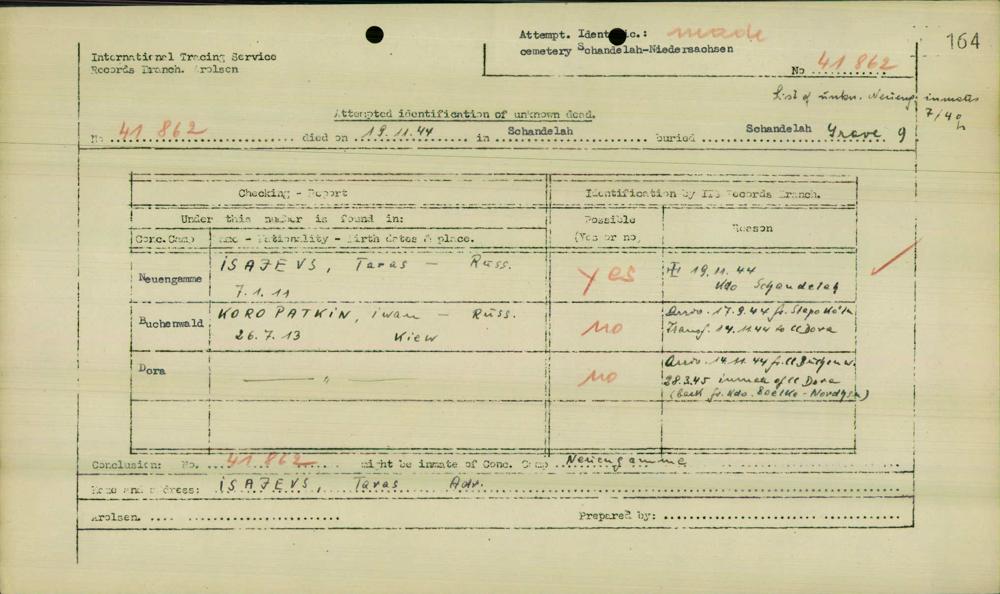 164
Attempt. Identific.: made
cemetery Schandelah-Niedersachsen
No 41 862
International Tracing Service
Records Branch. Arolsen
List of unkn. Neueng. inmates
7/40
Attempted identification of unknown dead.
No 41 862 died on 19.11.44 in Schandelah buried Schandelah Grave 9
Checking - Report
Identification by ITS Records Branch.
Under this number is found in:
Possible
(Yes or no)
Reason
Conc.Camp
Name - Nationality - Birth dates & place.
Neuengamme
ISAJEVS, Taras - Russ.
7.1.11
yes
19.11.44
Kdo Schandelah
Buchenwald
KOROPATKIN, iwan - Russ.
26.7.13 Kiew
no
Arriv. 17.9.44 fr. Stapo Köln
Transf. 14.11.44 to CC Dora
Dora
— " —
no
Arriv. 14.11.44 fr. CC Buchenw.
28.3.45 inmate of CC Dora
(back fr. Kdo. Boelke-Nordhsn)
Conclusion: No. 41 862 might be inmate of Conc. Camp Neuengamme
Name and address: ISAJEVS, Taras Adr.
Arolsen.
Prepared by: